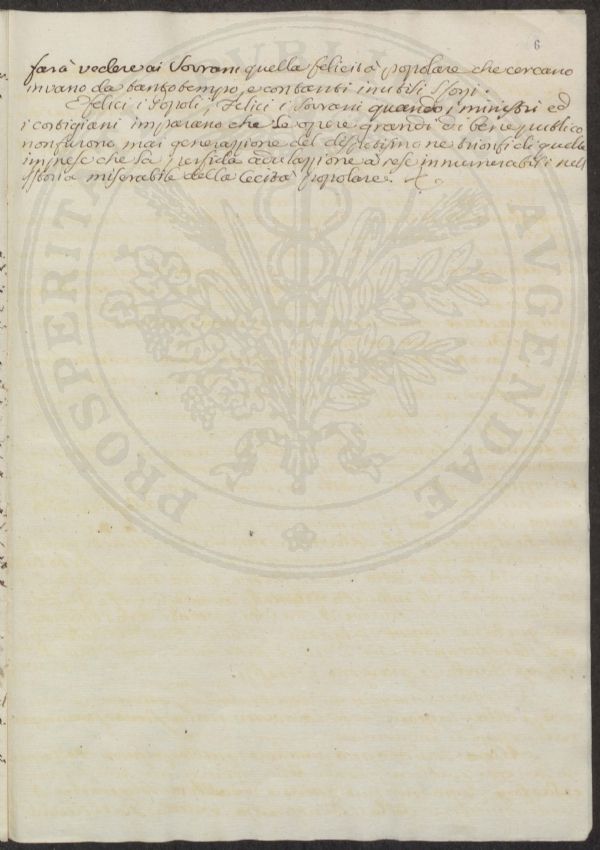 6
farà vedere ai Sovrani quella felicità popolare che cercano
invano da tanto tempo, e con tanti inutili sforzi.
Felici i Popoli, Felici i Sovrani quando i ministri ed
i cortigiani imparano che le opere grandi di bene publico
non furono mai generazione del dispotismo ne trionfi di quelle
imprese che la perfida adulazione a rese innumerabili nell
storia miserabile della Cecità popolare.
PROSPERITATI PUBLICAE AUGENDAE